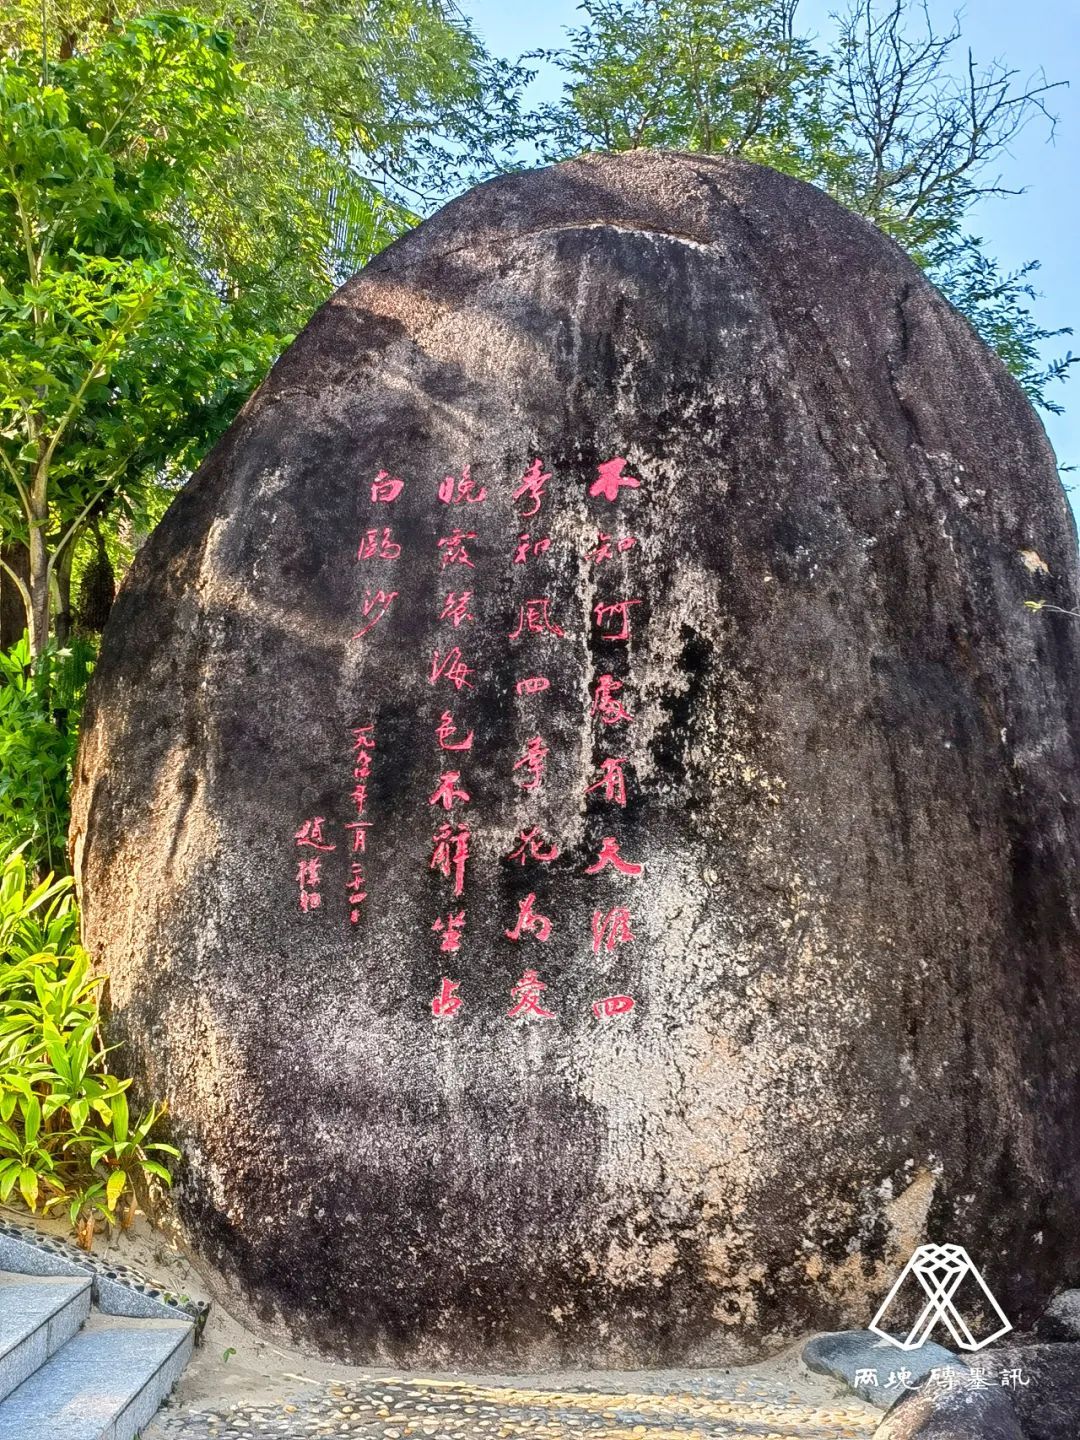 不知何處有天涯四
季和風四季花為愛
晚霞餐海色不辭坐占
白鷗沙
一九九四年一月二十四日
趙樸初
两塊磚墨訊